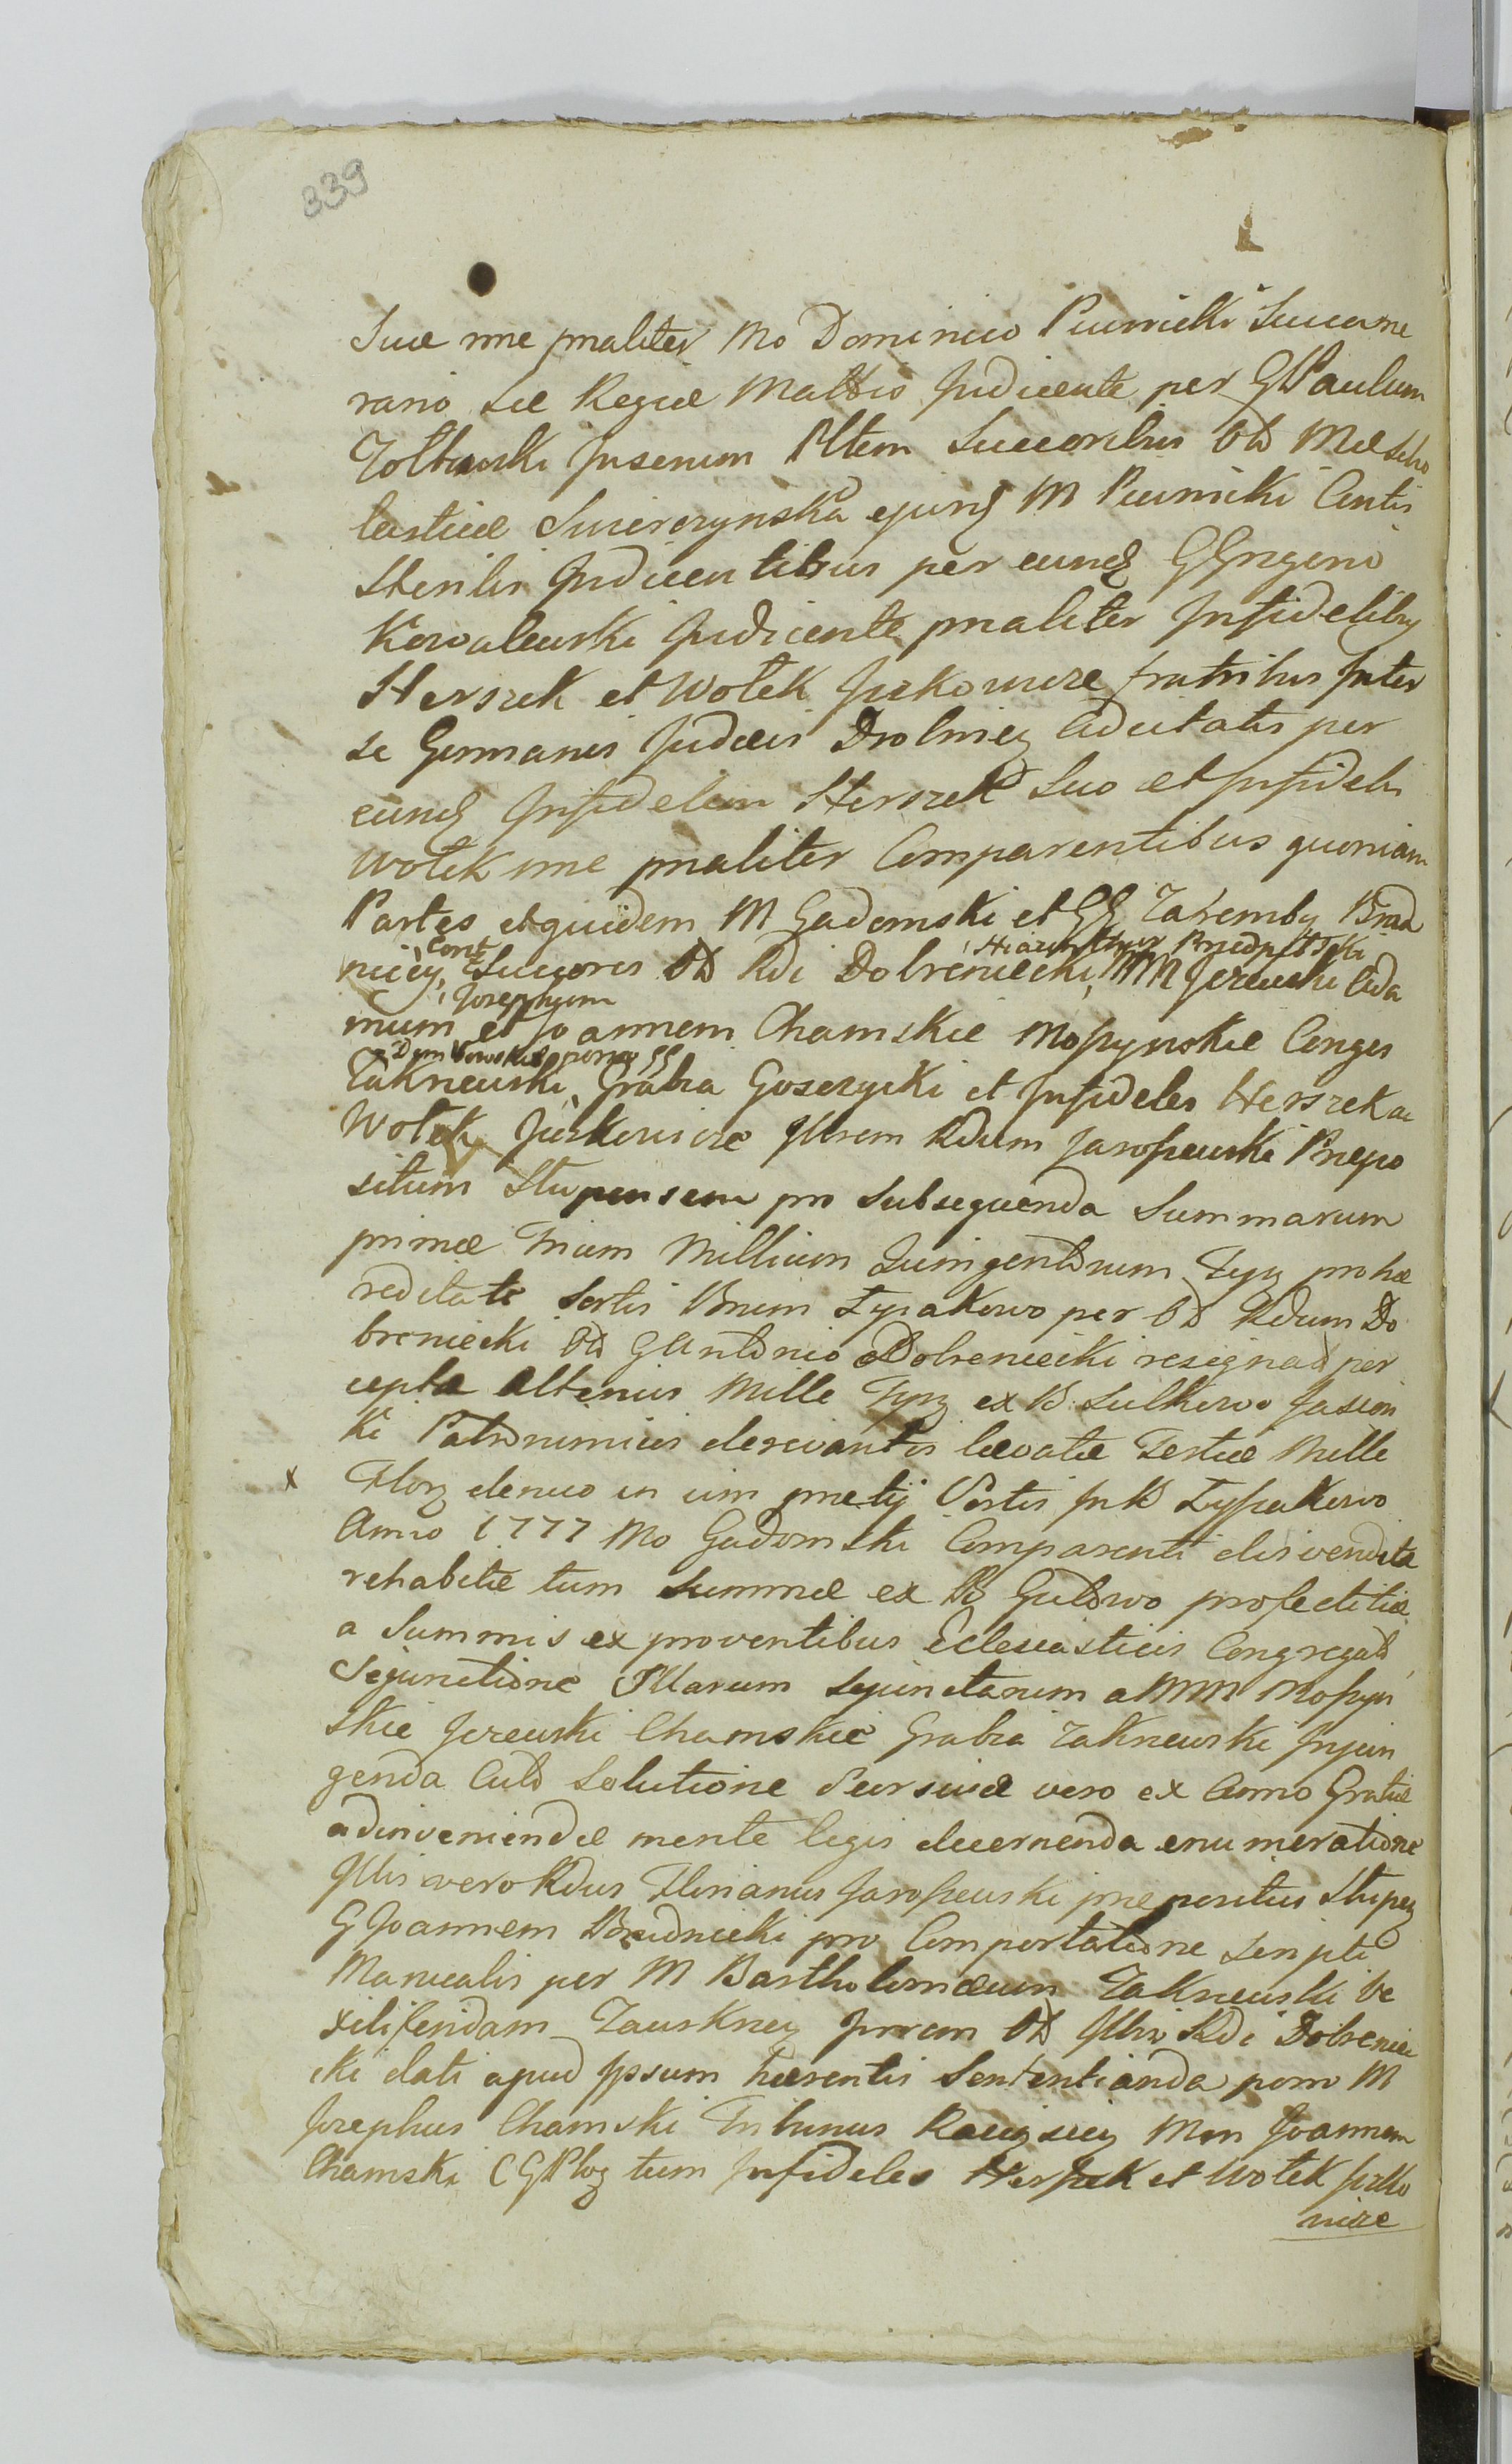 339
Suæ nne pnaliter Mo Dominico Piwnicki Succame
rario Sæ Regiæ Mattis Judicente per G Paulum
Zołtowski Jnsenum Pltem Succoribus Ob Mæ Scho
lasticæ Swierczynska ejung M Piwnicki Contis
Sterilis Judicentibus per eund G Grzegorio
Kowalewski Judicente pnaliter Jnfidelibg
Herszek et Wolek Jcekowicze fratribus Jnter
se Germanis Judæis Drobniey Adcitatis per
eund Jnfidelem Herszek Suo et Jnfidelis
Wolek nne pnaliter Comparentibus quoniam
Partes et quidem M Gadomski et GG Zaremby Brud
nicey, Cont Succores Ob Rdi Dobreniecki, Hiacynthus Przedpełski MM Jezewski Ada
mum, Josephum et Joannem Chamskie Mossynskie Conges
Zakrzewski, Dembowskie porro GG Grabia Goszczycki et Jnfideles Herszek ac
Wolek Jcekowicze Jllrem Rdum Jarossewski Prepo
situm Stupensem pro Subsequenda Summarum
primæ Trium Millium Quingentorum Fprg pro hæ
reditate Sortis Bnum Łysakowo per Ob Rdum Do
breniecki Ob G Antonio Dobreniecki resignat per
ceptæ Alterius Mille Fprg ex B: Sulkowo Jasion
ki Patronimicis derivantis levatæ Tertiæ Mille
x Florg denuo in vim pnetij Sortis Jn B Łyssakowo
Anno 1777 Mo Gadomski Comparenti disvendita
rehabitæ tum Summæ ex B Gutowo profectitiæ
a Summis ex proventibus Ecclesiasticis Congregat
Sejunctione Jllarum Sejunctarum a MM Mossyn
skie Jezewski Chamskie Grabia Zakrzewski Jnjun
genda Cuto Solutione Seorsivæ vero ex Anno Gratiæ
adinveniendæ mente legis decernenda enumeratione
Jllis vero Rdus Florianus Jarossewski prepositus Stupeg
G Joannem Brudnicki pro Comportatione Scripti
Manualis per M Bartholomæum Zakrzewski Ve
xiliferidam Zawskrzeg Jnrem Ob Jllris Rdi Dobrenie
cki dati apud Jpsum hærentis Sententianda porro M
Josephus Chamski Tribunus Racigscig Mgn Joannem
Chamski CGPlog tum Jnfideles Herssek et Wolek Jcko
wicze